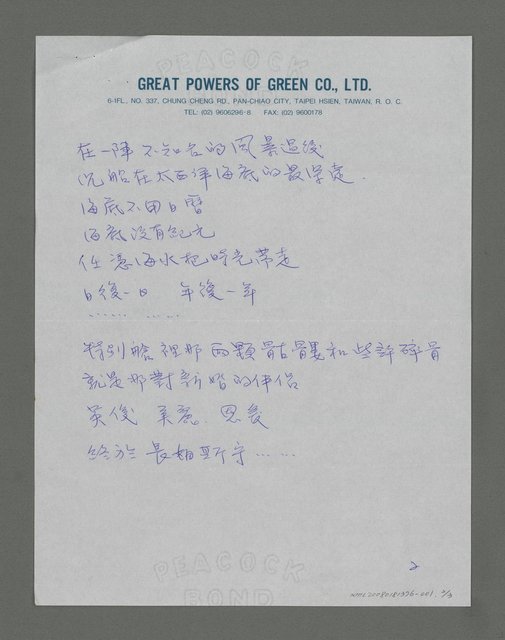 PEACOCK
GREAT POWERS OF GREEN CO., LTD.
6-1FL., NO. 337, CHUNG CHENG RD., PAN-CHIAO CITY, TAIPEI HSIEN, TAIWAN, R. O. C.
TEL: (02) 9606296-8 FAX: (02) 9600178
在一陣不知名的風暴過後
沉船在太西洋海底的最深處
海底不用日曆
海底沒有紀元
任憑海水把時光帶走
日復一日 年復一年
…… ……
特別艙裡那兩顆骷髏和些許碎骨
就是那對新婚的伴侶
英俊 美麗 恩愛
終於長相廝守……
2
PEACOCK
BOND